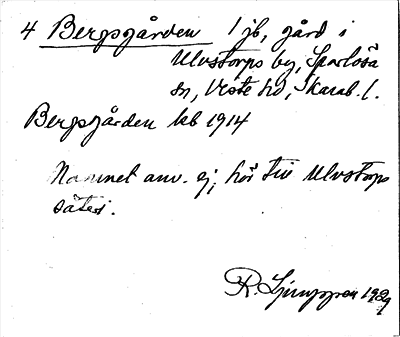 4 Bergsgården 1 jb, gård i
Ulvstorps by, Sparlösa
sn, Viste hd, Skarab. l.
Bergsgården kb 1914
Namnet anv. ej, hör till Ulvstorps
säteri.
R. Ljunggren 1929